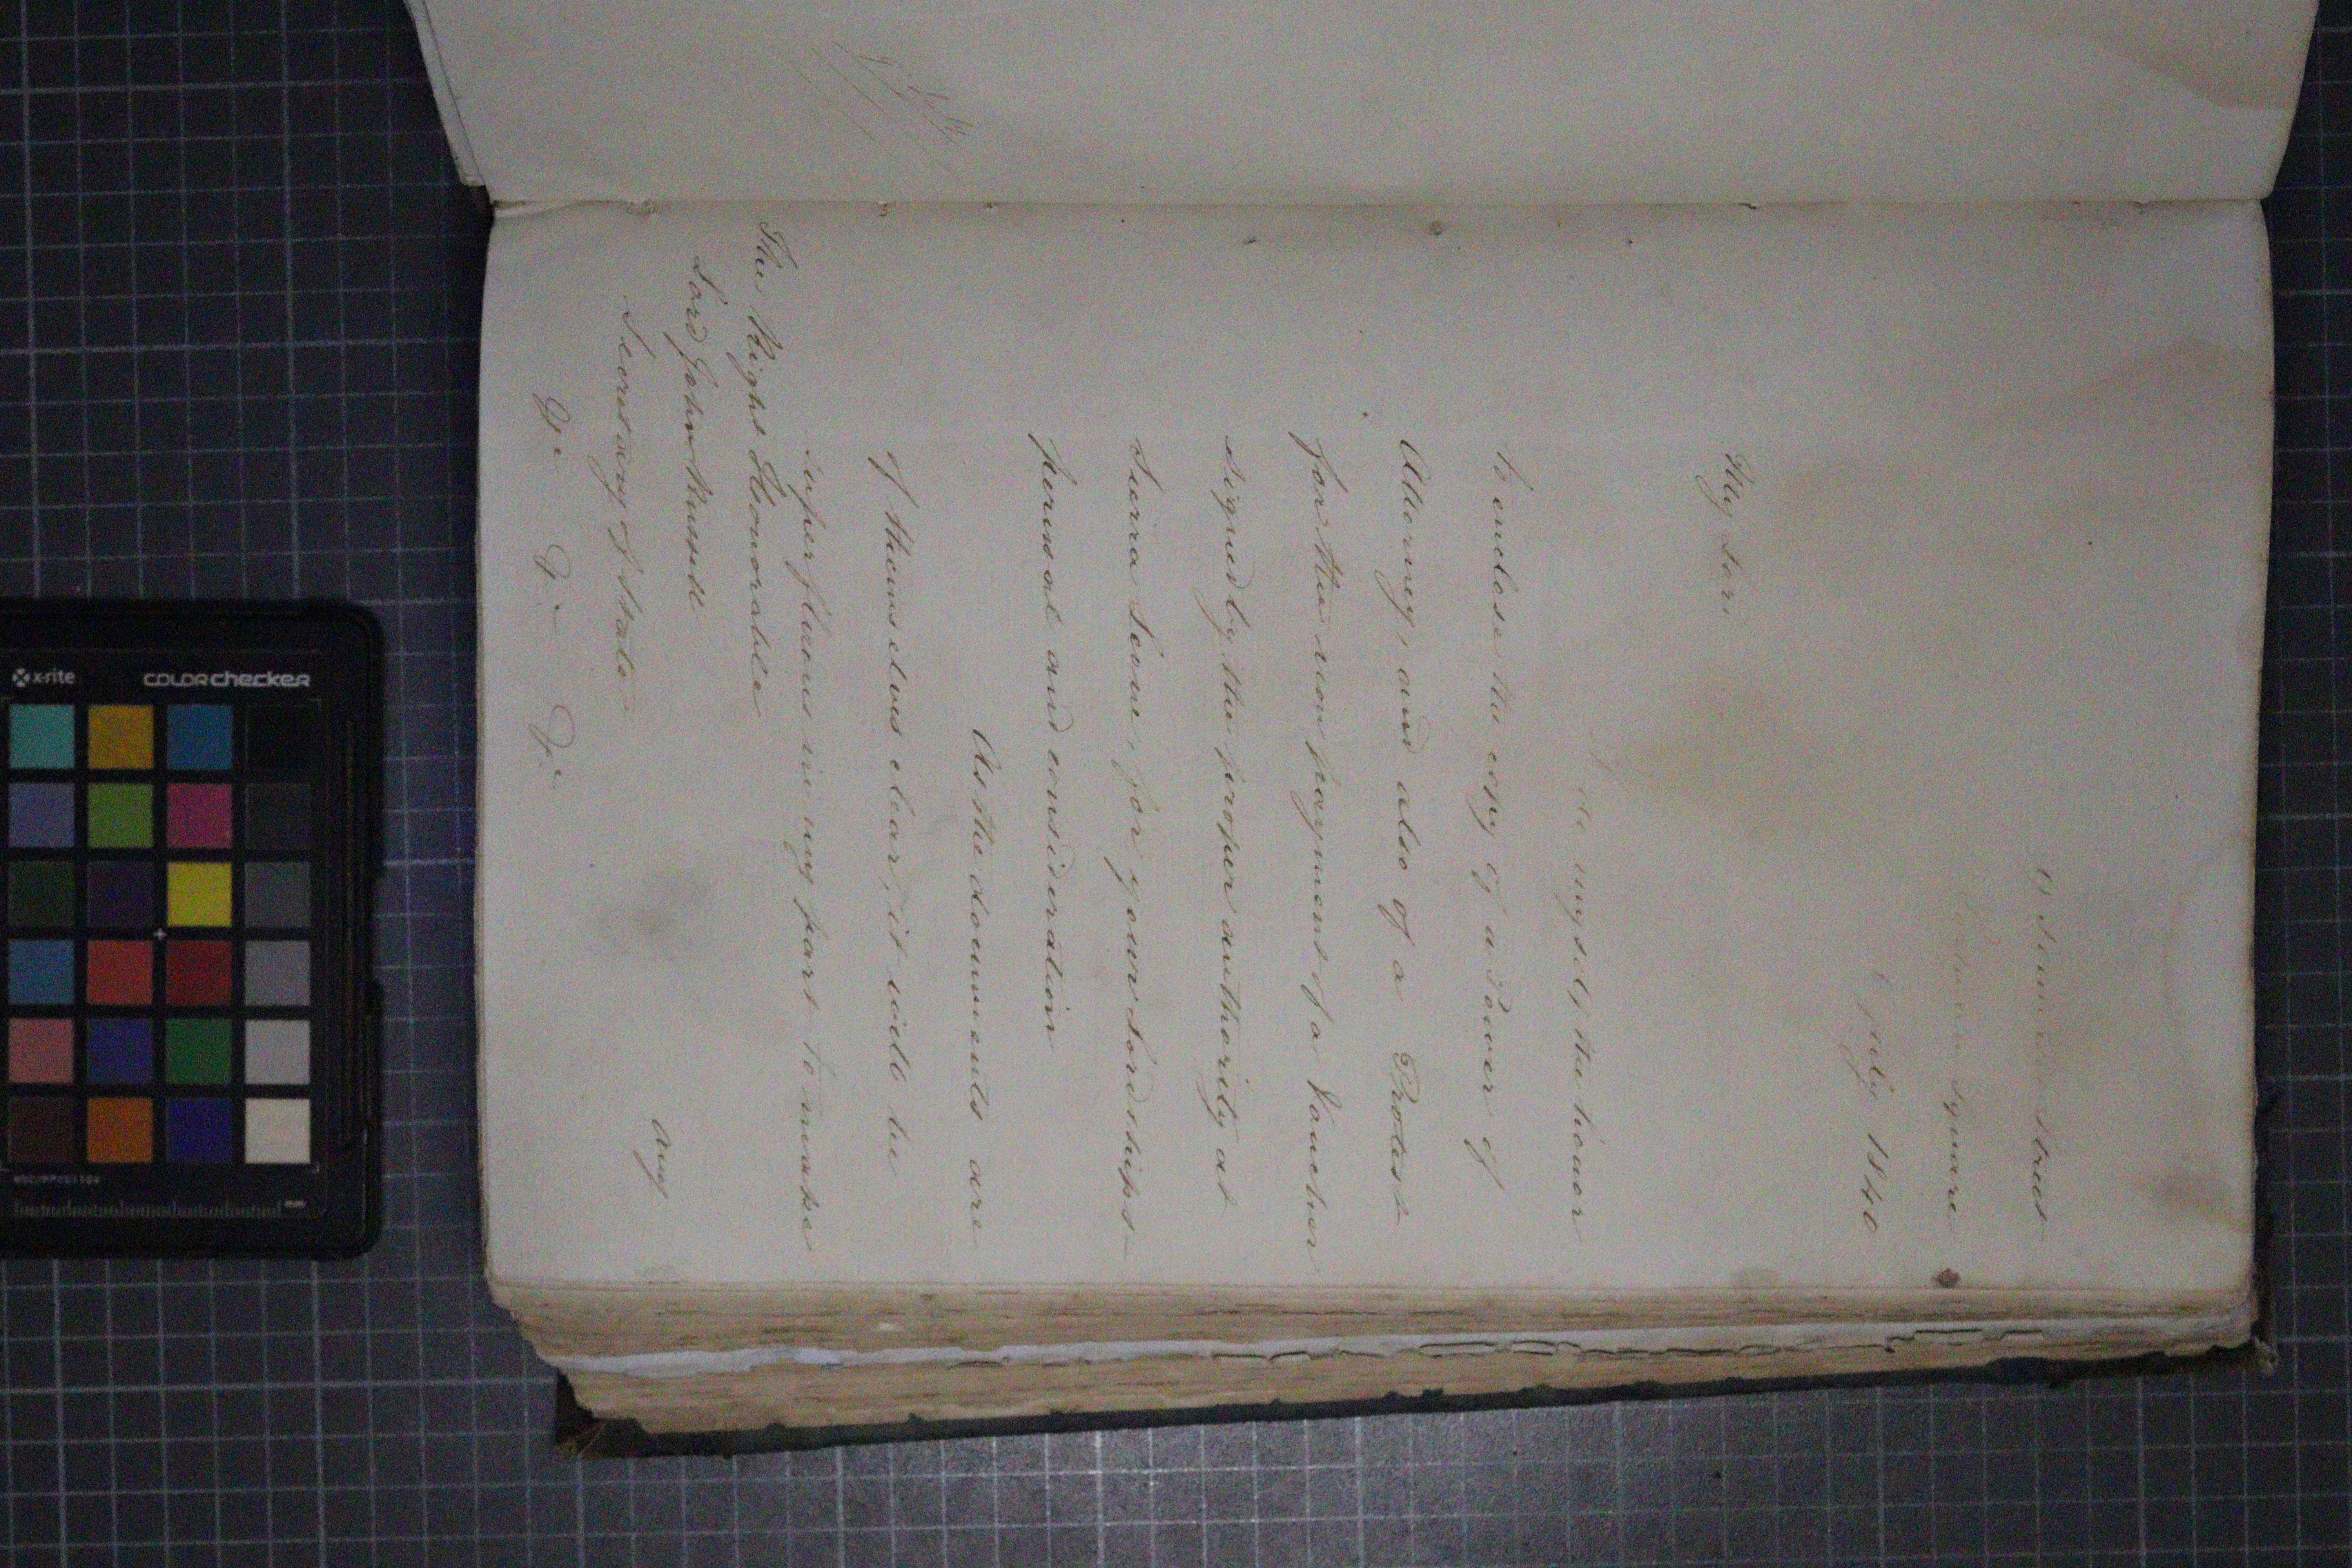 street
square
July 1840
My Lord
myself the honor
to enclose the copy of a Power of
Attorney, and also of a Protest
for the non payment of a Voucher
signed by the proper authority at
Sierra Leone, for your Lordships
perusal and consideration
As the documents are
of themselves clear, it will be
superfluous in my part to make
any
The Right Honorable
Lord John Russell
Secretary of State
&c &c &c
x-rite
colorchecker